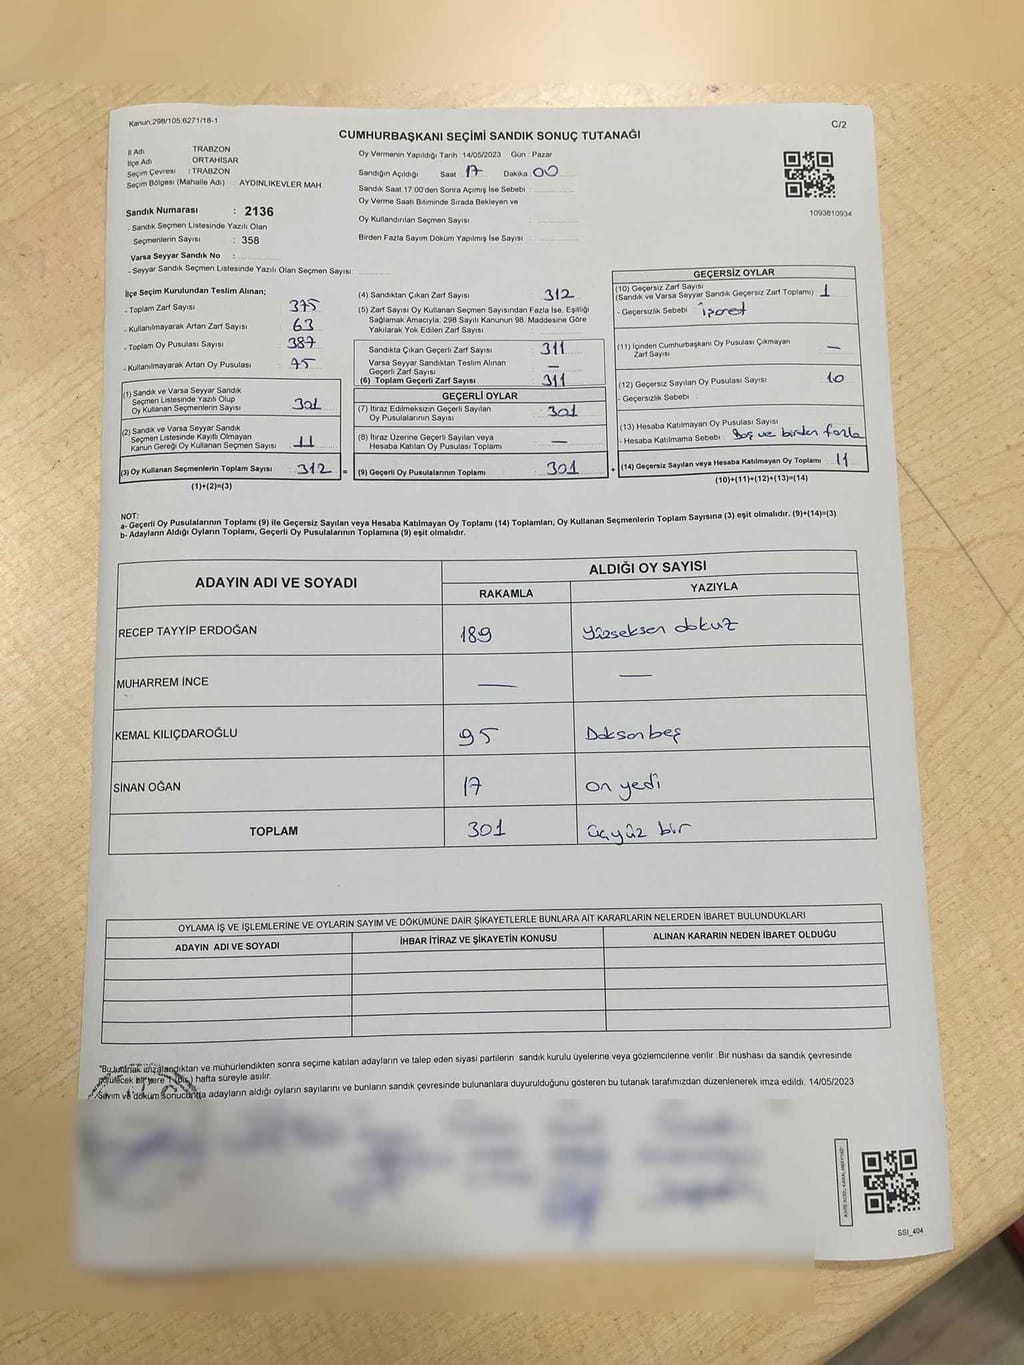 Kanun,298/105,6271/18-1
C/2
CUMHURBAŞKANI SEÇİMİ SANDIK SONUÇ TUTANAĞI
İl Adı TRABZON
İlçe Adı ORTAHİSAR
Seçim Çevresi : TRABZON
Seçim Bölgesi (Mahalle Adı) : AYDINLIKEVLER MAH.
Sandık Numarası : 2136
- Sandık Seçmen Listesinde Yazılı Olan
Seçmenlerin Sayısı : 358
Varsa Seyyar Sandık No :
- Seyyar Sandık Seçmen Listesinde Yazılı Olan Seçmen Sayısı:
Oy Vermenin Yapıldığı Tarih :14/05/2023 Gün : Pazar
Sandığın Açıldığı Saat : 17 Dakika : 00
Sandık Saat 17.00'den Sonra Açımış İse Sebebi :
Oy Verme Saati Bitiminde Sırada Bekleyen ve
Oy Kullandırılan Seçmen Sayısı :
Birden Fazla Sayım Döküm Yapılmış İse Sayısı :
1093810934
İlçe Seçim Kurulundan Teslim Alınan;
- Toplam Zarf Sayısı : 375
- Kullanılmayarak Artan Zarf Sayısı : 63
- Toplam Oy Pusulası Sayısı : 387
- Kullanılmayarak Artan Oy Pusulası : 75
(1) Sandık ve Varsa Seyyar Sandık
Seçmen Listesinde Yazılı Olup
Oy Kullanan Seçmenlerin Sayısı : 301
(2) Sandık ve Varsa Seyyar Sandık
Seçmen Listesinde Kayıtlı Olmayan
Kanun Gereği Oy Kullanan Seçmen Sayısı : 11
(3) Oy Kullanan Seçmenlerin Toplam Sayısı : 312 =
(1)+(2)=(3)
(4) Sandıktan Çıkan Zarf Sayısı : 312
(5) Zarf Sayısı Oy Kullanan Seçmen Sayısından Fazla İse, Eşitliği
Sağlamak Amacıyla, 298 Sayılı Kanunun 98. Maddesine Göre
Yakılarak Yok Edilen Zarf Sayısı :
Sandıkta Çıkan Geçerli Zarf Sayısı : 311
Varsa Seyyar Sandıktan Teslim Alınan
Geçerli Zarf Sayısı : —
(6) Toplam Geçerli Zarf Sayısı : 311
GEÇERLİ OYLAR
(7) İtiraz Edilmeksizin Geçerli Sayılan
Oy Pusulalarının Sayısı : 301
(8) İtiraz Üzerine Geçerli Sayılan veya
Hesaba Katılan Oy Pusulası Toplamı : —
(9) Geçerli Oy Pusulalarının Toplamı : 301 +
GEÇERSİZ OYLAR
(10) Geçersiz Zarf Sayısı
(Sandık ve Varsa Seyyar Sandık Geçersiz Zarf Toplamı) : 1
- Geçersizlik Sebebi : işaret
(11) İçinden Cumhurbaşkanı Oy Pusulası Çıkmayan
Zarf Sayısı : —
(12) Geçersiz Sayılan Oy Pusulası Sayısı : 10
- Geçersizlik Sebebi :
(13) Hesaba Katılmayan Oy Pusulası Sayısı :
- Hesaba Katılmama Sebebi : Boş ve birden fazla
(14) Geçersiz Sayılan veya Hesaba Katılmayan Oy Toplamı : 11
(10)+(11)+(12)+(13)=(14)
NOT:
a- Geçerli Oy Pusulalarının Toplamı (9) ile Geçersiz Sayılan veya Hesaba Katılmayan Oy Toplamı (14) Toplamları, Oy Kullanan Seçmenlerin Toplam Sayısına (3) eşit olmalıdır. (9)+(14)=(3)
b- Adayların Aldığı Oyların Toplamı, Geçerli Oy Pusulalarının Toplamına (9) eşit olmalıdır.
ADAYIN ADI VE SOYADI
ALDIĞI OY SAYISI
RAKAMLA YAZIYLA
RECEP TAYYİP ERDOĞAN 189 Yüzseksen dokuz
MUHARREM İNCE — —
KEMAL KILIÇDAROĞLU 95 Doksanbeş
SİNAN OĞAN 17 on yedi
TOPLAM 301 üçyüz bir
OYLAMA İŞ VE İŞLEMLERİNE VE OYLARIN SAYIM VE DÖKÜMÜNE DAİR ŞİKAYETLERLE BUNLARA AİT KARARLARIN NELERDEN İBARET BULUNDUKLARI
ADAYIN ADI VE SOYADI İHBAR İTİRAZ VE ŞİKAYETİN KONUSU ALINAN KARARIN NEDEN İBARET OLDUĞU
"Bu tutanak imzalandıktan ve mühürlendikten sonra seçime katılan adayların ve talep eden siyasi partilerin sandık kurulu üyelerine veya gözlemcilerine verilir. Bir nüshası da sandık çevresinde
görülecek bir yere 1 (bir) hafta süreyle asılır.
Sayım ve döküm sonucunda adayların aldığı oyların sayılarını ve bunların sandık çevresinde bulunanlara duyurulduğunu gösteren bu tutanak tarafımızdan düzenlenerek imza edildi. 14/05/2023
SSI_404